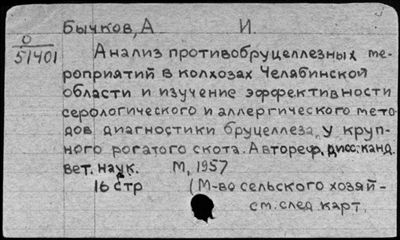 Бычков, А И.
О
51401
Анализ противобруцеллезных ме-
роприятий в колхозах Челябинской
области и изучение эффективности
серологического и аллергического мето-
дов диагностики бруцеллеза, у круп-
ного рогатого скота. Автореф. дисс. канд.
вет. наук. М, 1957
16 стр (М-во сельского хозяй-
см. след карт.